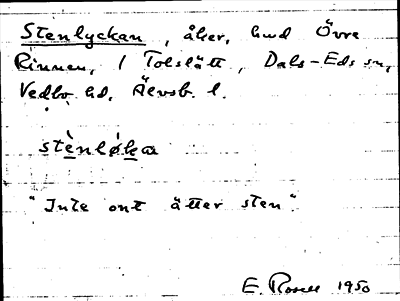 Stenlyckan, åker, hmd Övre
Rinnen, 1 Tolslätt, Dals-Eds sn,
Vedbo hd, Älvsb. l.
stènløka
"Inte ont åtter sten".
E. Rosell 1950